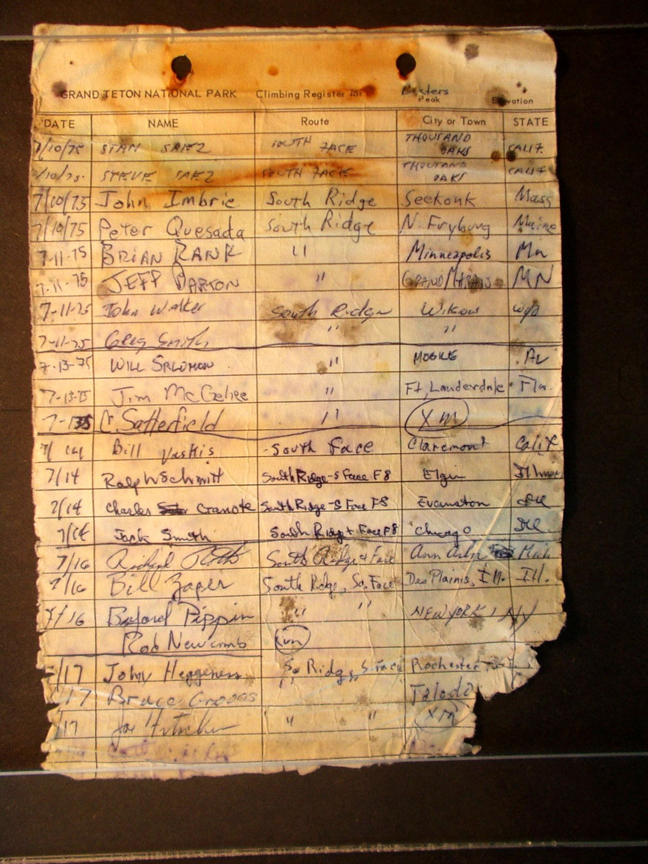 GRAND TETON NATIONAL PARK Climbing Register for Peak Elevation
DATE NAME Route City or Town STATE
7/10/75 STAN SAEZ SOUTH FACE THOUSAND OAKS CALIF
/10/75 STEVE SAEZ SOUTH FACE THOUSAND OAKS CALIF
7/10/75 John Imbrie South Ridge Seekonk Mass
7/10/75 Peter Quesada South Ridge N. Fryburg Maine
7-11-75 BRIAN RANK " Minneapolis Mn
7-11-75 JEFF PARTON " GRAND MARAIS MN
7-11-75 John Walker South Ridge Wilson wyo
7-11-75 Greg Smith " "
7-13-75 WILL SALOMON " MOBILE
7-13-75 Jim McGehee " Ft Lauderdale Fla.
7-1375 Satterfield " (XM)
7/14 Bill South Face Claremont Calif
7/14 Ralph Schmitt South Ridge-S Face F8 Elgin
7/14 Charles Cranote South Ridge-S Face F8 Evanston Ill
7/14 Jack Smith South Ridge + Face F8 Chicago Ill
7/16 Richard South Ridge + Face Ann Arbor Mich
7/16 Bill Zager South Ridge, So. Face Des Plaines, Ill. Ill.
7/16 Pippin " " NEW YORK NY
Rob Newcomb
/17 John Heggeness So Ridge, S. Face Rochester
/17 Bruce Groves " Toledo
/17 Joe " " (XM)